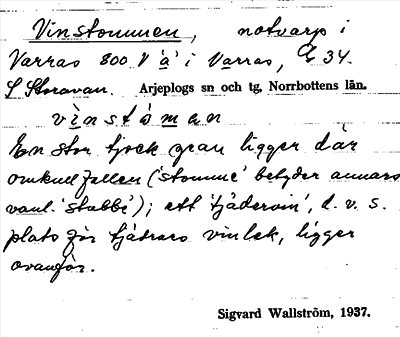 Vinstommen, notvarp i
Varras 800 V 'a' i Varras, G 34.
S Storavan. Arjeplogs sn och tg, Norrbottens län.
vinstoman
En stor tjock gran ligger där
omkullfallen ('stomme' betyder annars
vanl. 'stubbe'); ett 'tjädervin', d. v. s.
plats för tjädrars vinlek, ligger
ovanför.
Sigvard Wallström, 1937.